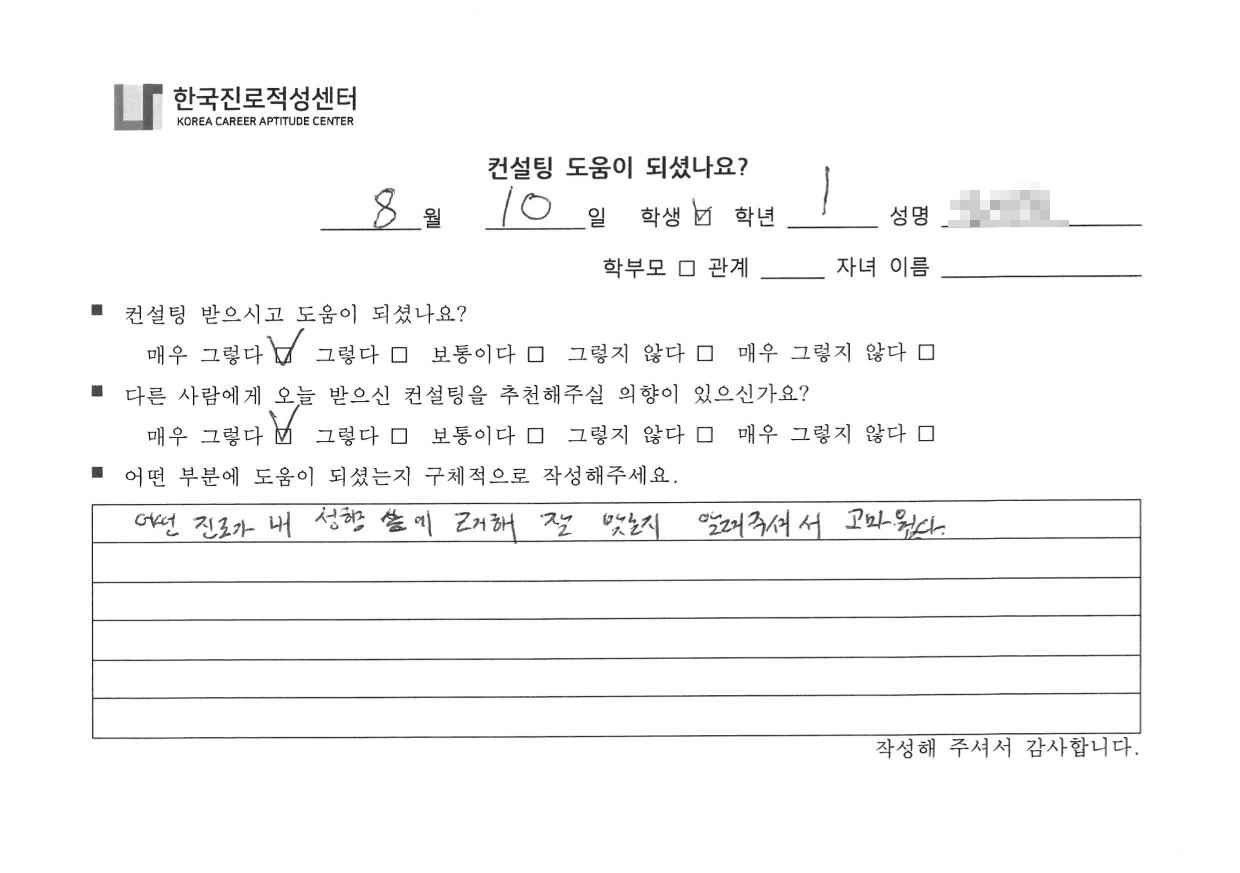 한국진로적성센터
KOREA CAREER APTITUDE CENTER
컨설팅 도움이 되셨나요?
8 월 10 일 학생 ☑ 학년 1 성명
학부모 □ 관계 자녀 이름
■ 컨설팅 받으시고 도움이 되셨나요?
매우 그렇다 ☑ 그렇다 □ 보통이다 □ 그렇지 않다 □ 매우 그렇지 않다 □
■ 다른 사람에게 오늘 받으신 컨설팅을 추천해주실 의향이 있으신가요?
매우 그렇다 ☑ 그렇다 □ 보통이다 □ 그렇지 않다 □ 매우 그렇지 않다 □
■ 어떤 부분에 도움이 되셨는지 구체적으로 작성해주세요.
어떤 진로가 내 성향 에 근거해 잘 맞는지 알려주셔서 고마웠다.
작성해 주셔서 감사합니다.